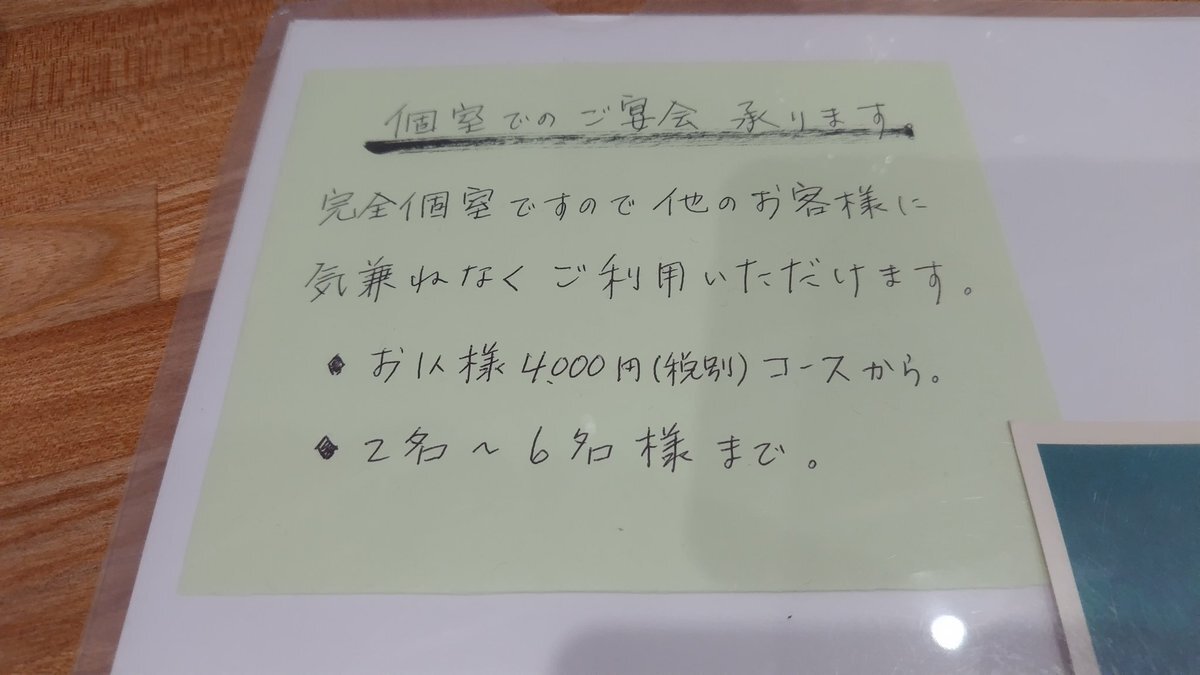 個室でのご宴会 承ります。
完全個室ですので他のお客様に
気兼ねなくご利用いただけます。
◆ お1人様 4,000円(税別)コースから。
◆ 2名～6名様まで。